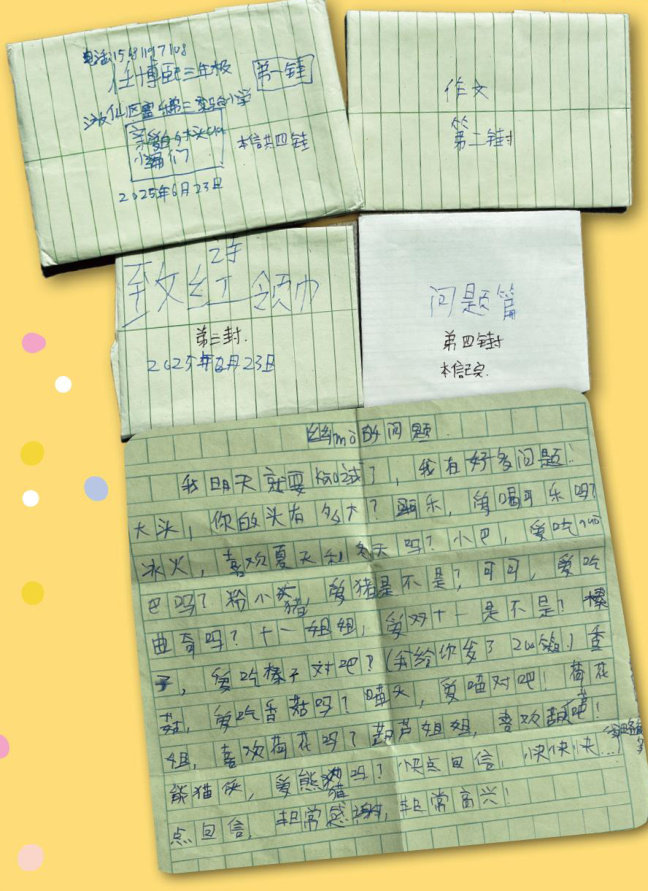 第一封
三年级
本信共四封
2025年6月23日
作文
第二封
致红领巾
第三封
2025年6月23日
问题篇
第四封
本信已完
幽mò的问题
我明天就要考试了,我有好多问题!
大头,你的头有多大?可乐,爱喝可乐吗?
冰火,喜欢夏天和冬天吗?小巴,爱吃
巴吗?粉小猪,爱猪是不是?可可,爱吃
曲奇吗?十一姐姐,爱对十一是不是?榛
子,爱吃榛子对吧?(我给你发了20篇)香
菇,爱吃香菇吗?喵头,爱喵对吧!荷花
姐,喜欢荷花吗?葫芦姐姐,喜欢葫芦吧!
熊猫侠,爱熊猫吗?快点回信,快快快…
点回信,非常感谢,非常高兴!